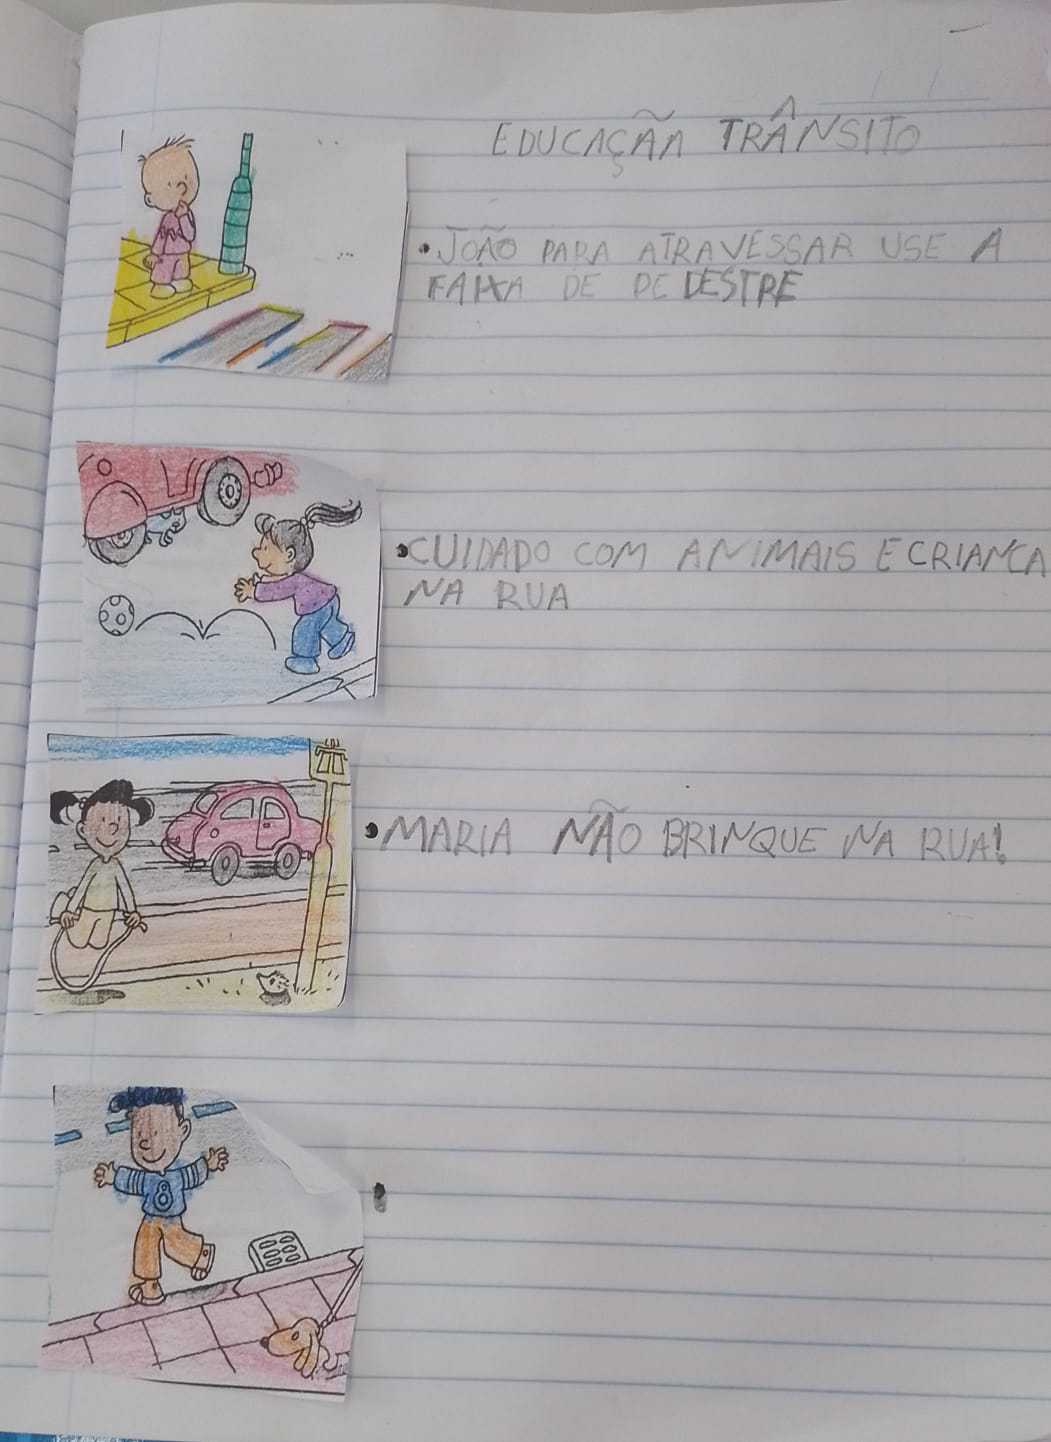 EDUCAÇÃA TRÂNSITO
• JOÃO PARA ATRAVESSAR USE A
FAIXA DE PEDESTRE
• CUIDADO COM ANIMAIS E CRIANCA
NA RUA
• MARIA NÃO BRINQUE NA RUA!
•
8